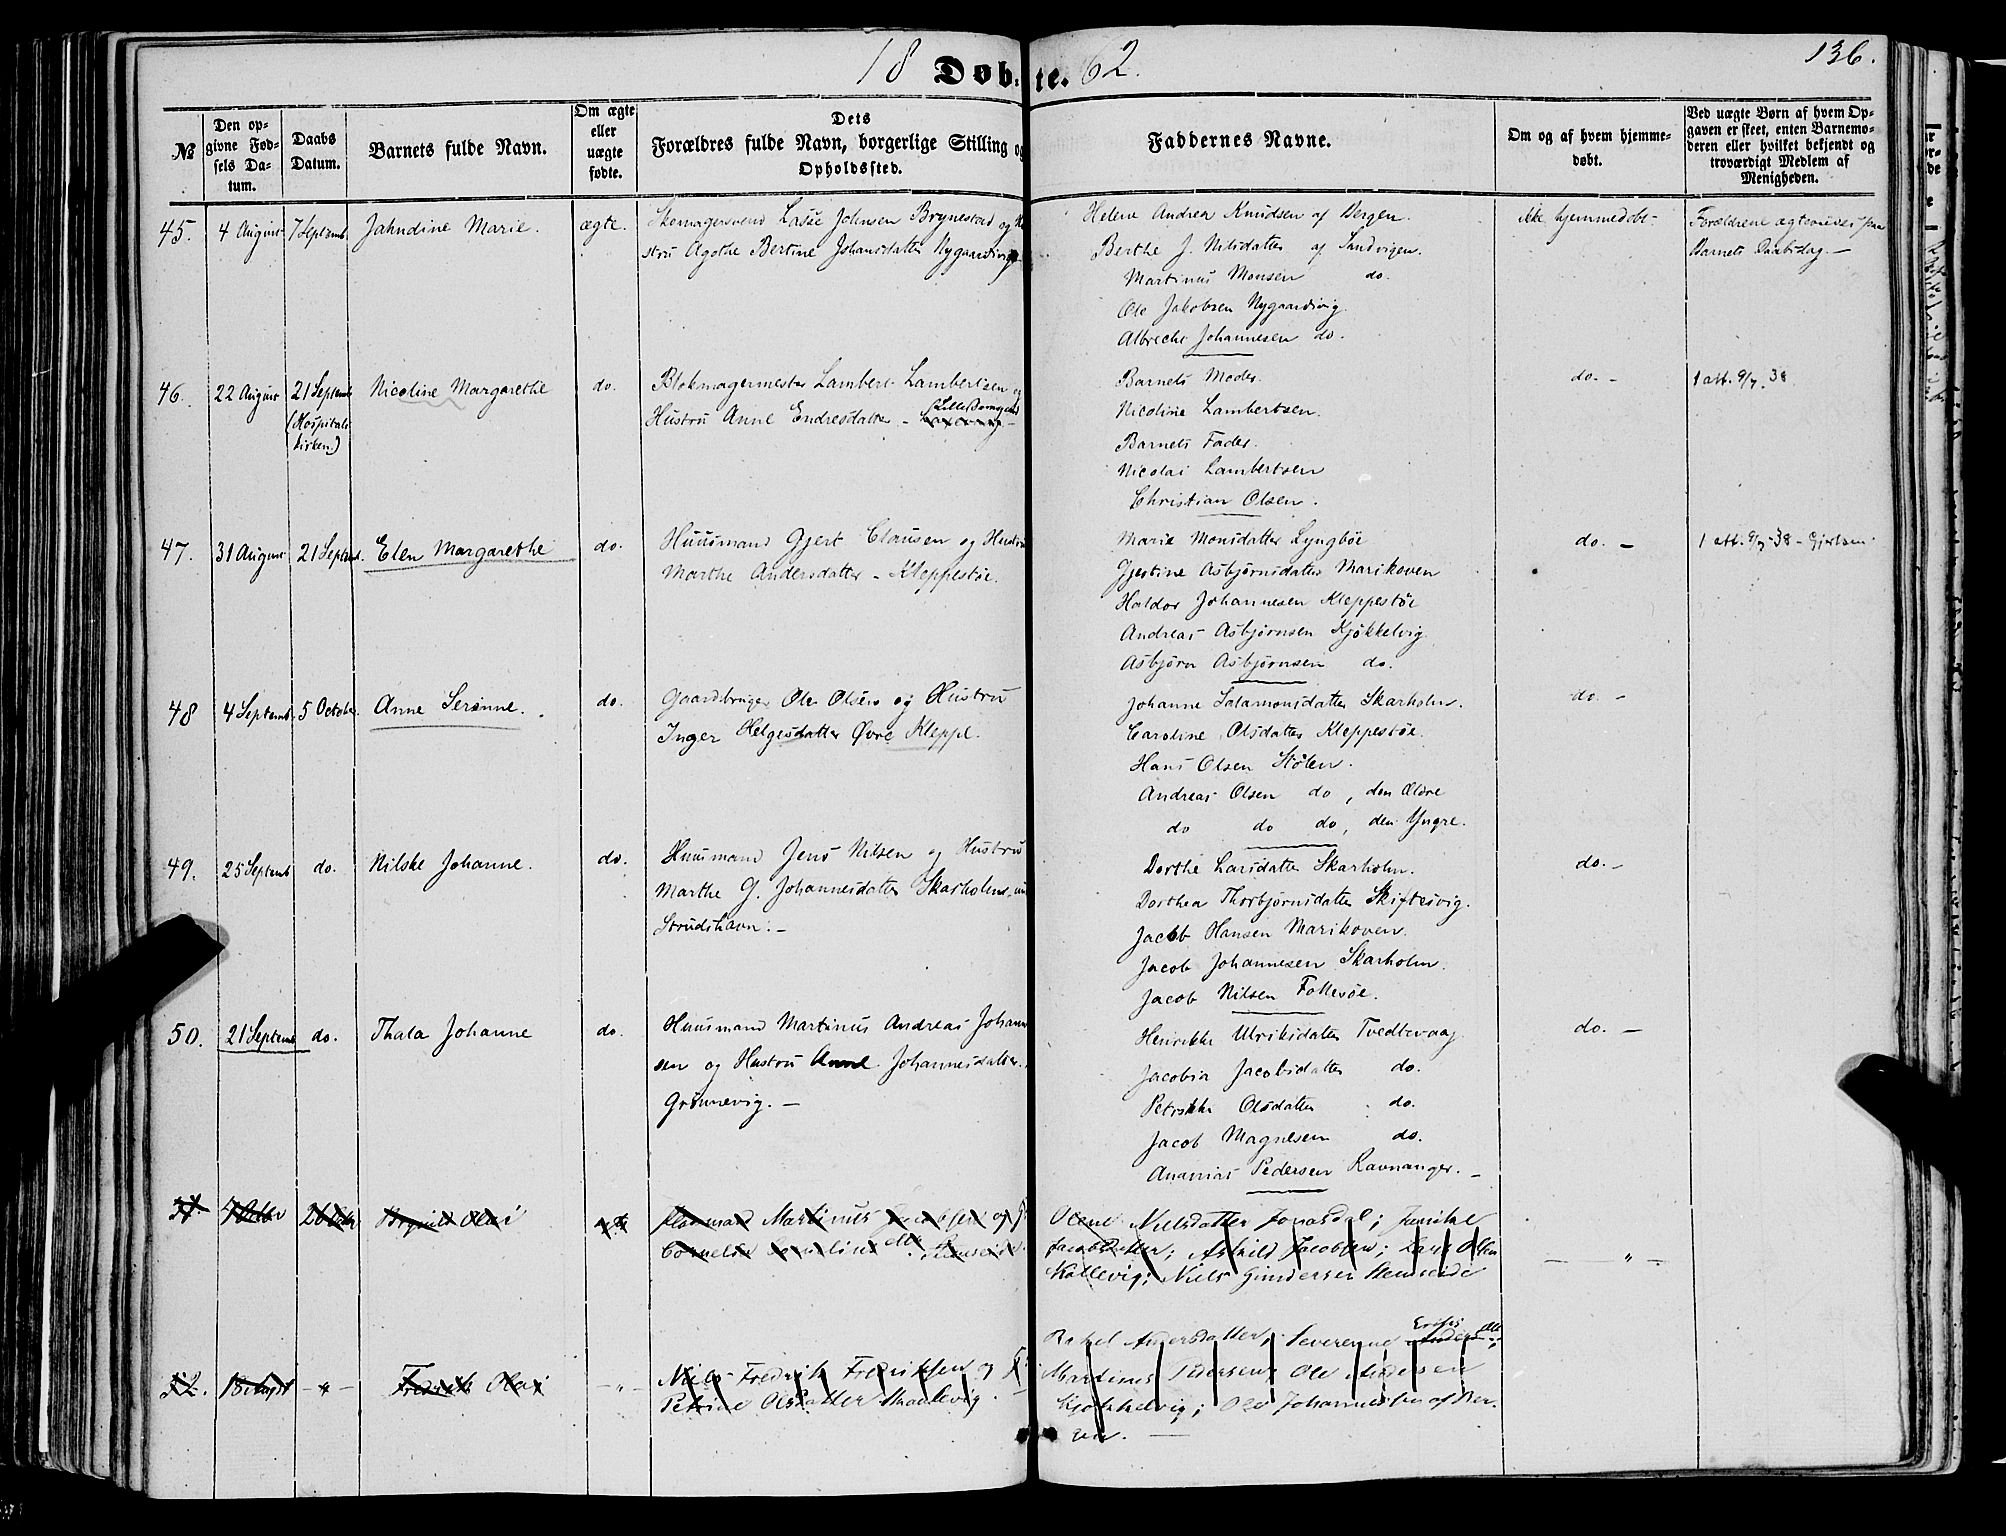 18 Døbte. 62.
136.
№
Den op-
givne Fød-
sels Da-
tum.
Daabs
Datum.
Barnets fulde Navn.
Om ægte
eller
uægte
fødte.
Dets
Forældres fulde Navn, borgerlige Stilling og
Opholdssted.
Faddernes Navne.
Om og af hvem hjemme-
døbt.
Ved uægte Børn af hvem Op-
gaven er skeet, enten Barnemo-
deren eller hvilket bekjendt og
troværdigt Medlem af
Menigheden.
45. 4 August 7 Septemb. Jahndine Marie. ægte. Skomagersvend Lasse Johnsen Brynestad og Hu
stru Agathe Bertine Johansdatter Nygaardsvig
Helene Andrea Knudsen af Bergen.
Berthe J. Nilsdatter af Sandvigen.
Martinus Monsen do.
Ole Jakobsen Nygaardsvig
Albrecht Johannesen do.
ikke hjemmedøbt-
Forældrene ægteviet paa
Barnets Daabsdag. —
46. 22 August 21 Septemb (Hospitals kirken.) Nicoline Margarethe do. Blokmagermester Lambert Lambertsen og
Hustru Anne Endresdatter -
Barnets Moder.
Nicoline Lambertsen.
Barnets Fader.
Nicolai Lambertsen
Christian Olsen.
do. -
1 att. 9/7. 38
47. 31 August 21 Septemb. Elen Margarethe do. Huusmand Gjert Clausen og Hustru
Marthe Andersdatter - Kleppestøe.
Marie Monsdatter Lyngbøe
Gjestine Asbjørnsdatter Marikoven
Haldor Johannesen Kleppestøe
Andreas Asbjørnsen Kjøkkelvig
Asbjørn Asbjørnsen do.
do. -
1 att. 9/7-38 - Gjertsen.
48 4 Septemb. 5 October. Anne Serinne. do. Gaardbruger Ole Olsen og Hustru
Inger Helgesdatter Øvre Kleppe.
Johanne Salamonsdatter Skarholm.
Caroline Olsdatter Kleppestøe.
Hans Olsen Stølen.
Andreas Olsen do, den Ældre
do do do, den Yngre.
do. -
49. 25 Septemb do. Nilske Johanne. do. Huusmand Jens Nilsen og Hustru
Marthe G. Johannesdatter Skarholm, un
Strudshavn. -
Dorthe Larsdatter Skarholm.
Dorthea Thorbjørnsdatter Skiftesvig.
Jacob Hansen Marikoven.
Jacob Johannesen Skarholm.
Jacob Nilsen Follesøe.
do. -
50. 21 Septemb do. Thala Johanne do. Huusmand Martinus Andreas Johan
sen og Hustru Anne Johannesdatter.
Grønnevig. —
Henrikke Ulriksdatter Tvedtevaag
Jacobia Jacobsdatter do.
Petrikke Olsdatter do.
Jacob Magnesen do.
Ananias Pedersen Ravnanger. -
do. —
51. 26 Octr Brynild Olai Martinus Jacobsen og
Olene Nielsdatter Jonasdal; Jansike
Jacobsdatter; Askild Jacobsen; Lars Olsen
Kallevig; Niels Gundersen Steinseide
— „ —
52. 18 August - „ - Fredrik Olai - „ - Niels Fredrik Fredriksen og
Petrine Olsdatter
Rakel Anfersdatter, Severenne Eriksdtr;
Martinus Pedersen, Ole Andersen
Kjøkkelvig; Ole Johannessen af Ber-
gen. —